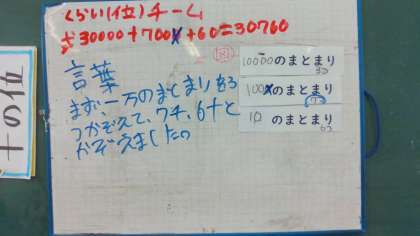 くらい(位)チーム
式30000+700+60=30760
図
言葉
まず、一万のまとまりを3
つかぞえて、7千、6十と
かぞえました。
10000のまとまり
3こ
100のまとまり
7こ
10のまとまり
6こ
十の位